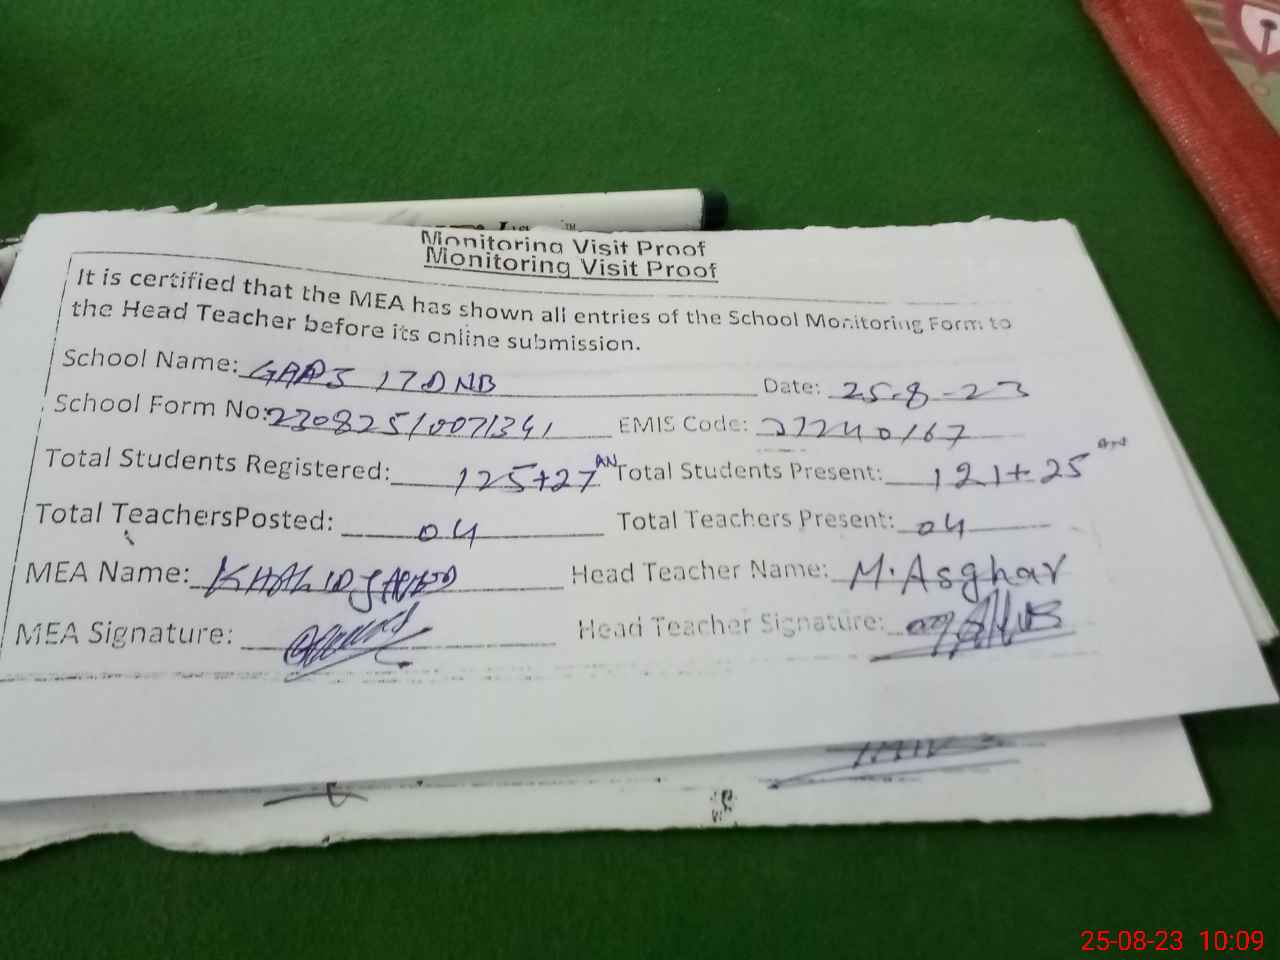 Monitoring Visit Proof
Monitoring Visit Proof
It is certified that the MEA has shown all entries of the School Monitoring Form to
the Head Teacher before its online submission.
School Name: GAPS 17 DNB Date: 25-8-23
School Form No: 230825/0071341 EMIS Code: 31240167
Total Students Registered: 125+27 AN Total Students Present: 121+25 AN
Total TeachersPosted: 04 Total Teachers Present: 04
MEA Name: KHALID JAVED Head Teacher Name: M.Asghar
MEA Signature: Head Teacher Signature:
25-08-23 10:09